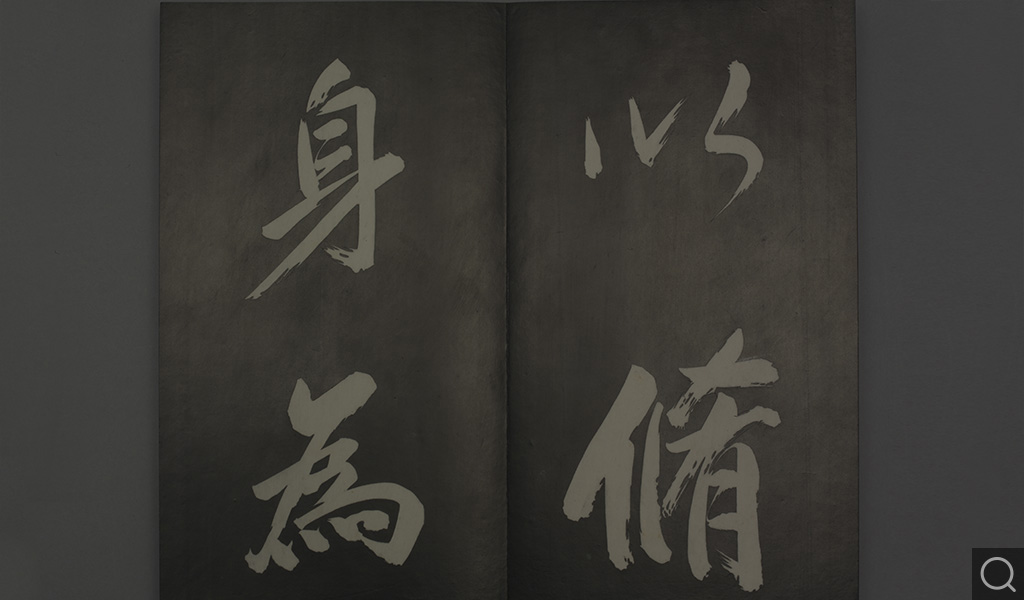 以脩
身為